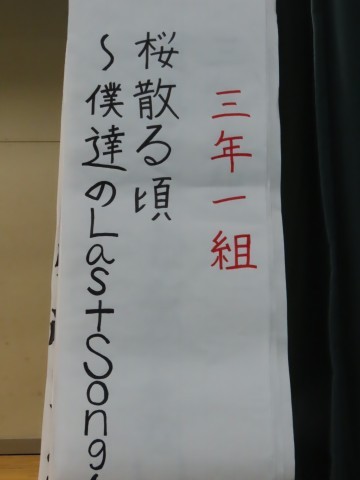 三年一組
桜散る頃
～僕達のLast Song～